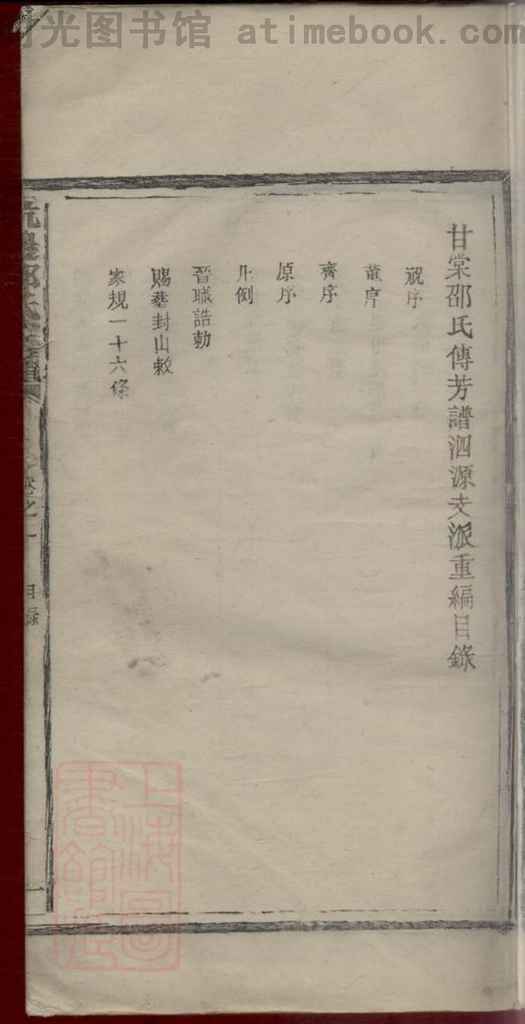 光图书馆 atimebook.com
甘棠邵氏傳芳譜泗源支派重編目錄
祝序
黃序
齊序
原序
凡例
晉職誥勅
賜塋封山敕
家規一十六條
卷之一 目錄 一
上海圖書館藏